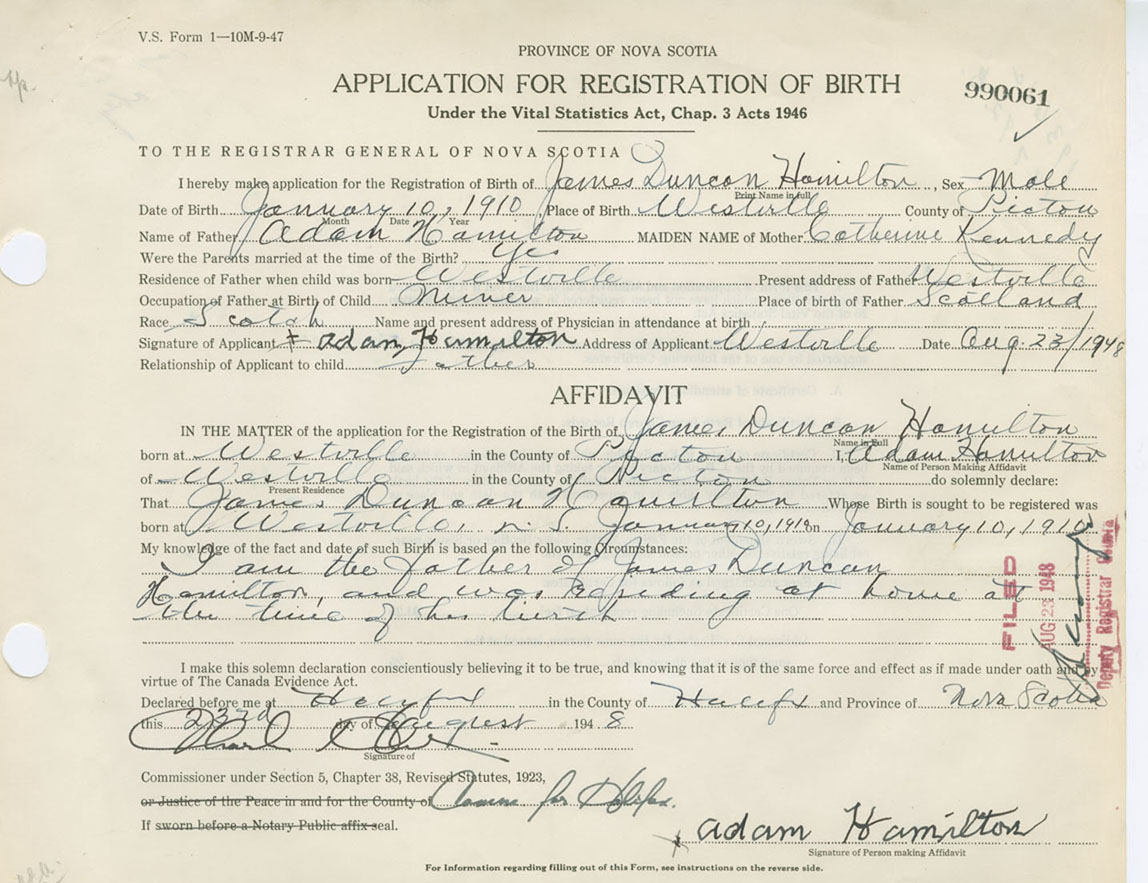 V.S. Form 1—10M-9-47
PROVINCE OF NOVA SCOTIA
APPLICATION FOR REGISTRATION OF BIRTH
990061
Under the Vital Statistics Act, Chap. 3 Acts 1946
TO THE REGISTRAR GENERAL OF NOVA SCOTIA
I hereby make application for the Registration of Birth of James Duncan Hamilton, Sex Male
Print Name in full
Date of Birth January 10, 1910 Place of Birth Westville County of Pictou
Month Date Year
Name of Father Adam Hamilton MAIDEN NAME of Mother Catherine Kennedy
Were the Parents married at the time of the Birth? Yes
Residence of Father when child was born Westville Present address of Father Westville
Occupation of Father at Birth of Child Miner Place of birth of Father Scotland
Race Scotch Name and present address of Physician in attendance at birth
Signature of Applicant Adam Hamilton Address of Applicant Westville Date Aug. 23/1948
Relationship of Applicant to child Father
AFFIDAVIT
IN THE MATTER of the application for the Registration of the Birth of James Duncan Hamilton
Name in full
born at Westville in the County of Pictou I, Adam Hamilton
Name of Person Making Affidavit
of Westville in the County of Pictou do solemnly declare:
Present Residence
That James Duncan Hamilton Whose Birth is sought to be registered was
born at Westville, N. S. January 10, 1910 on January 10, 1910
My knowledge of the fact and date of such Birth is based on the following Circumstances:
I am the father of James Duncan
Hamilton, and was residing at home at
the time of his birth
FILED
AUG 23 1948
Deputy Registrar General
I make this solemn declaration conscientiously believing it to be true, and knowing that it is of the same force and effect as if made under oath and by
virtue of The Canada Evidence Act.
Declared before me at Halifax in the County of Halifax and Province of Nova Scotia
this 23rd day of August 1948
Signature of
Commissioner under Section 5, Chapter 38, Revised Statutes, 1923,
or Justice of the Peace in and for the County of Comm for Halifax.
If sworn before a Notary Public affix seal.
Adam Hamilton
Signature of Person making Affidavit
For Information regarding filling out of this Form, see instructions on the reverse side.